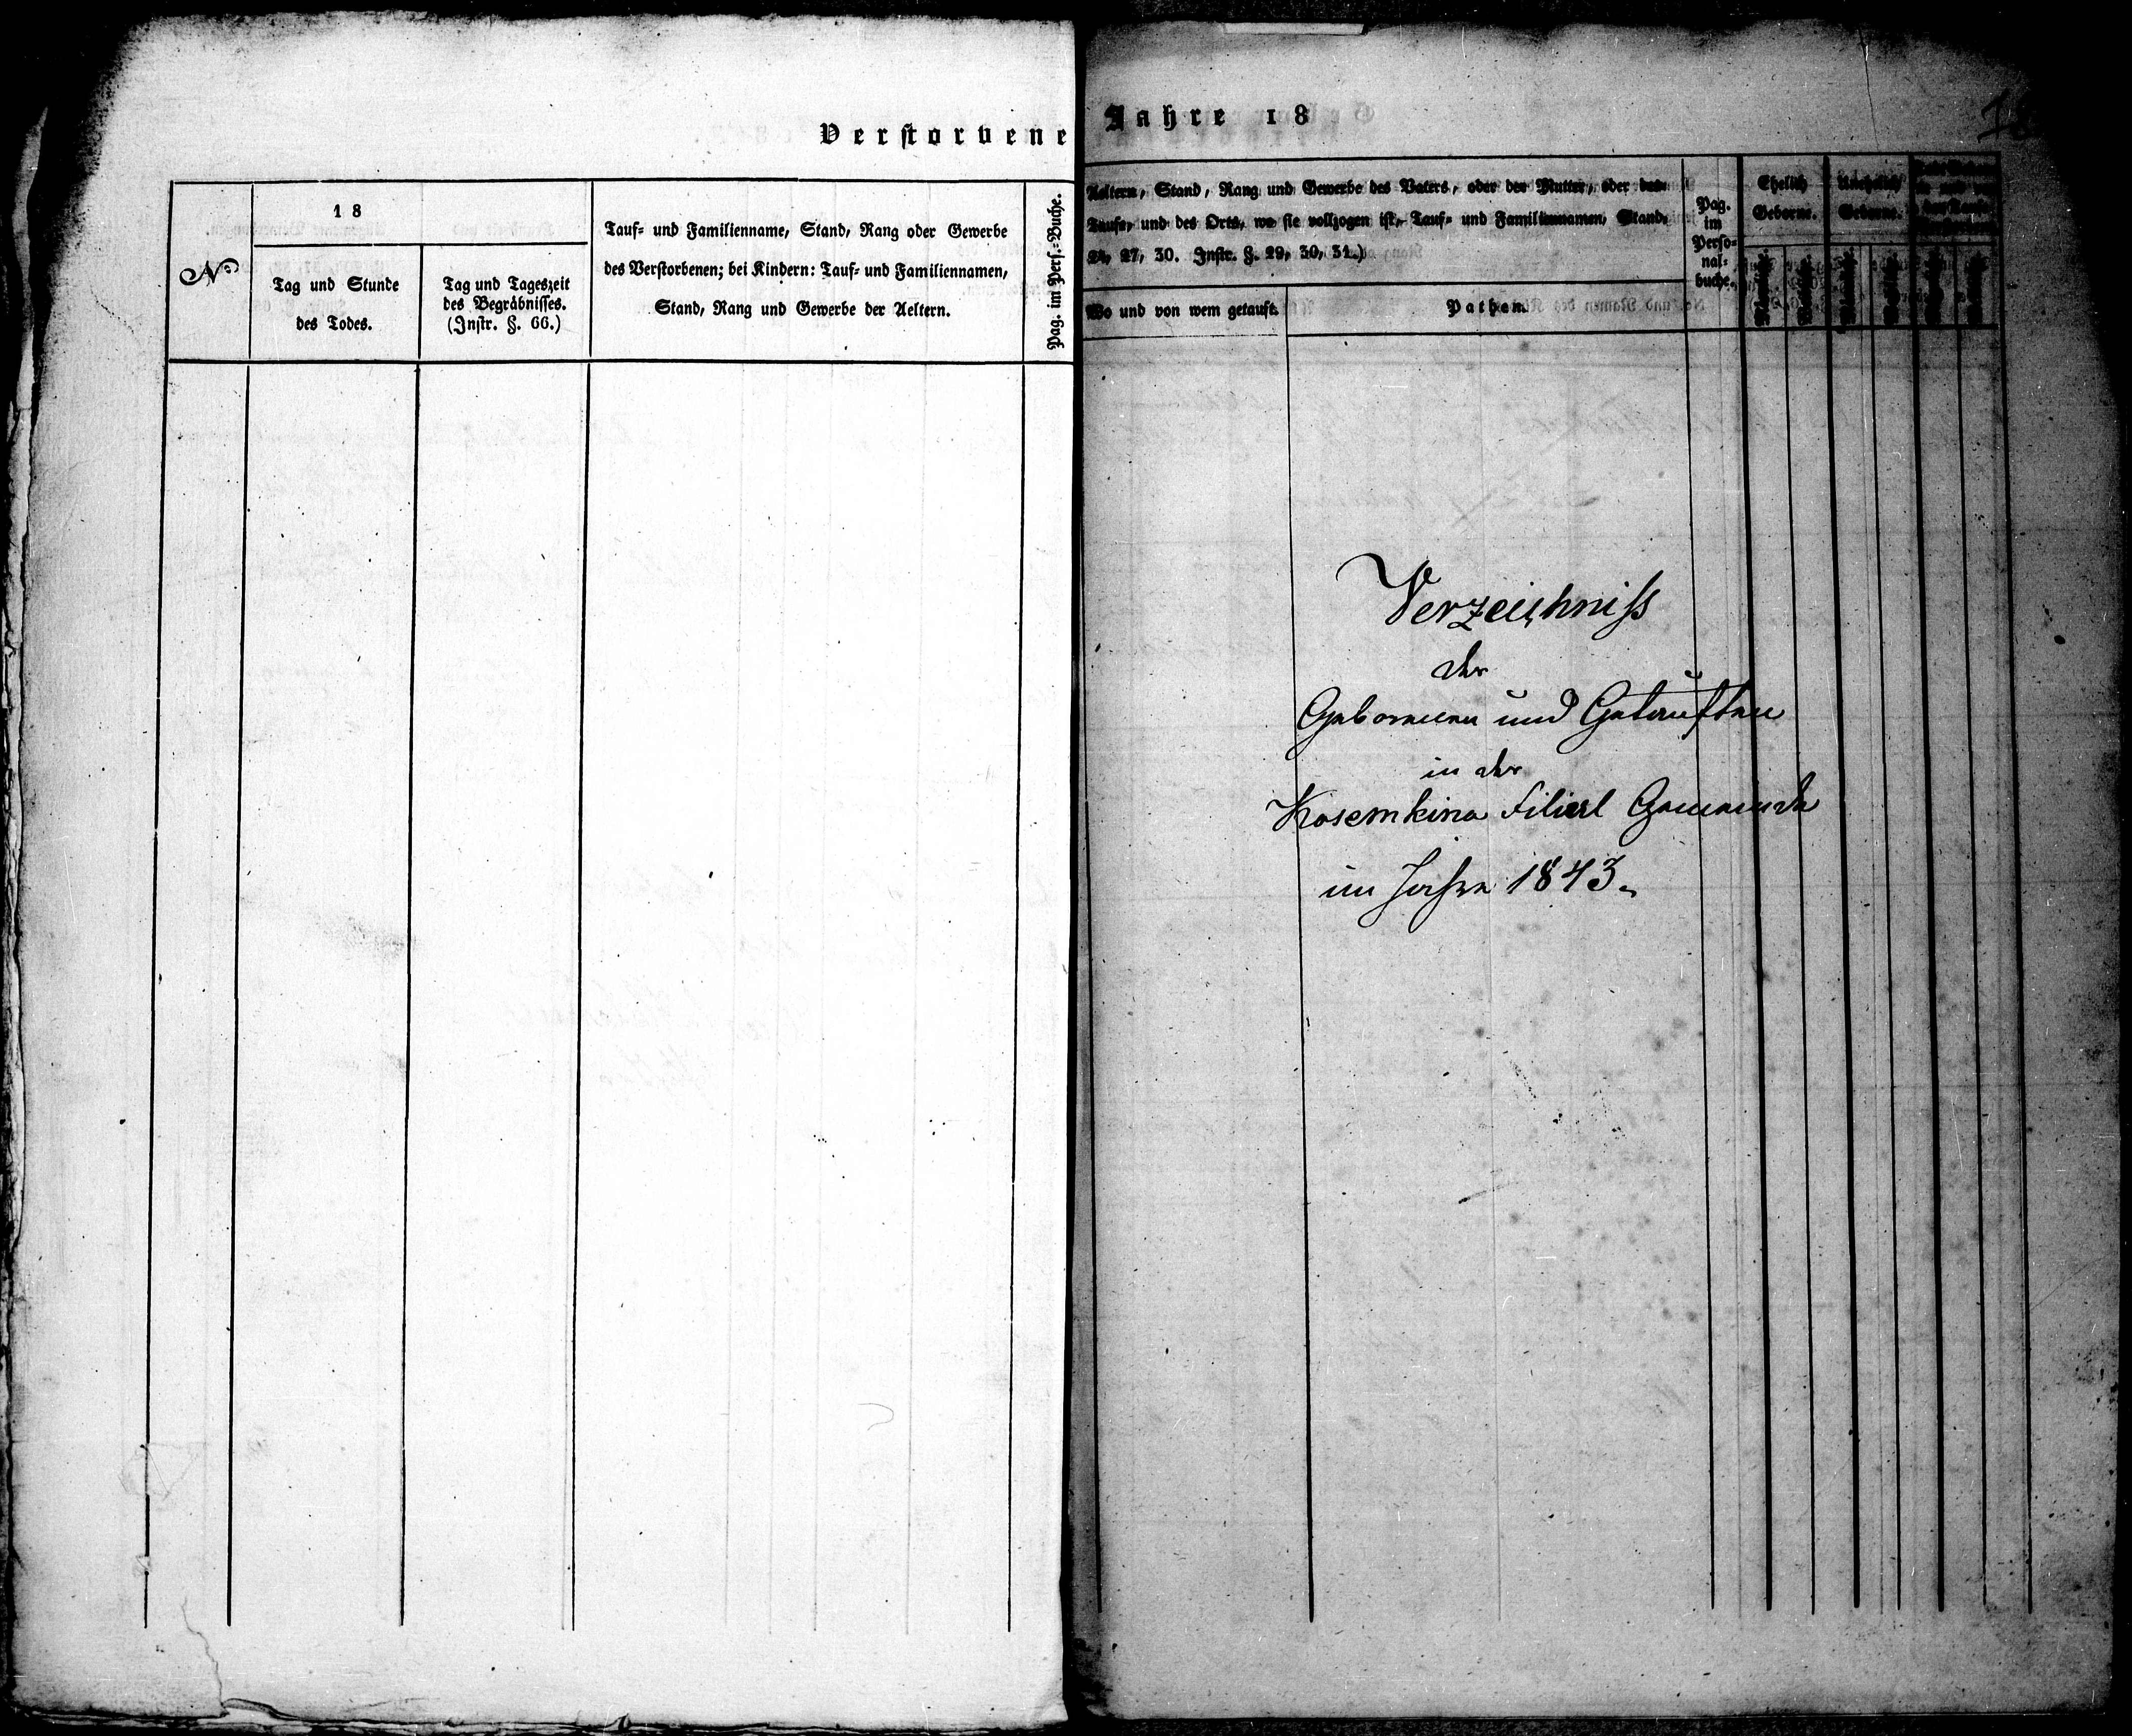 Verstorbene
N°
18
Tag und Stunde
des Todes.
Tag und Tageszeit
des Begräbnisses.
(Instr. §. 66.)
Tauf- und Familienname, Stand, Rang oder Gewerbe
des Verstorbenen; bei Kindern: Tauf- und Familiennamen,
Stand, Rang und Gewerbe der Aeltern.
Pag. im Pers.-Buche.
Jahre 18
Aeltern, Stand, Rang und Gewerbe des Vaters, oder der Mutter, oder
Taufe, und des Orts, wo sie vollzogen ist, Tauf- und Familiennamen, Stand,
24, 27, 30. Instr. §. 29, 30, 31.)
Wo und von wem getauft.
Pathen.
Pag.
im
Perso-
nal-
buche.
Ehelich
Geborne.
Unehelich
Geborne.
Verzeichniss
der
Geborenen und Getauften
in der
Kosemkina Filial Gemeinde
im Jahre 1843.